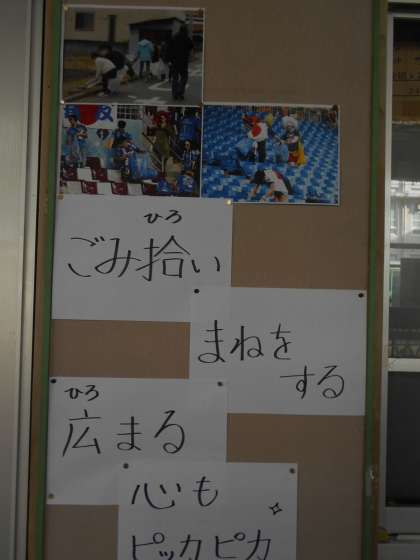 ひろ
ごみ拾い
まねを
する
ひろ
広まる
心も
ピッカピカ